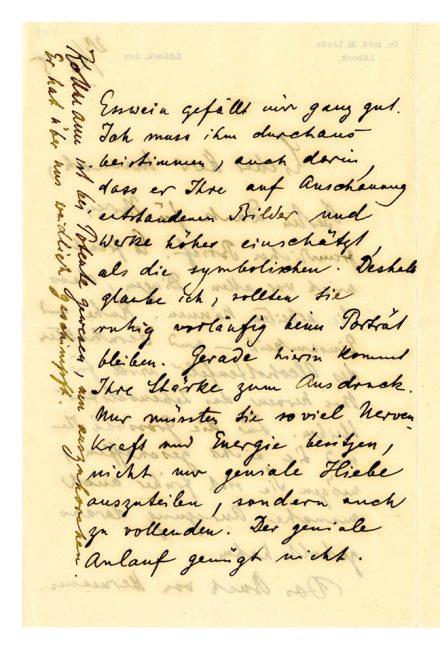 Esswein gefällt mir ganz gut.
Ich muss ihm durchaus
beistimmen, auch darin,
dass er Ihre auf Anschauung
entstandenen Bilder und
Werke höher einschätzt,
als die symbolischen. Deshalb
glaube ich, sollten Sie
ruhig vorläufig beim Porträt
bleiben. Gerade hierin kommt
Ihre Stärke zum Ausdruck.
Nur müssten Sie soviel Nerven
kraft und Energie besitzen,
nicht nur geniale Hiebe
auszuteilen, sondern auch
zu vollenden. Der geniale
Anlauf genügt nicht.
Kollmann ist bei gewesen, um auszuhorchen.
Er hat über uns weidlich geschimpft.
Dr. med. M. Linde
Lübeck.
Lübeck, den